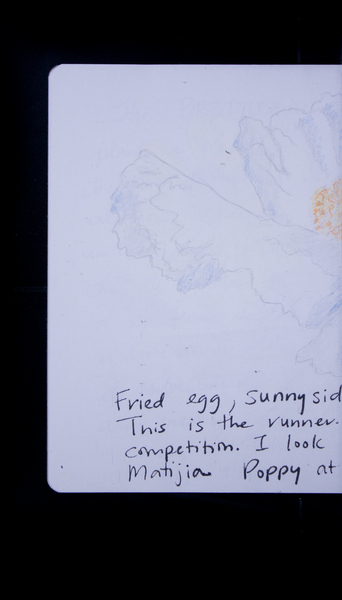 Fried egg, sunny sid
This is the runner.
competition. I look
Matijia Poppy at